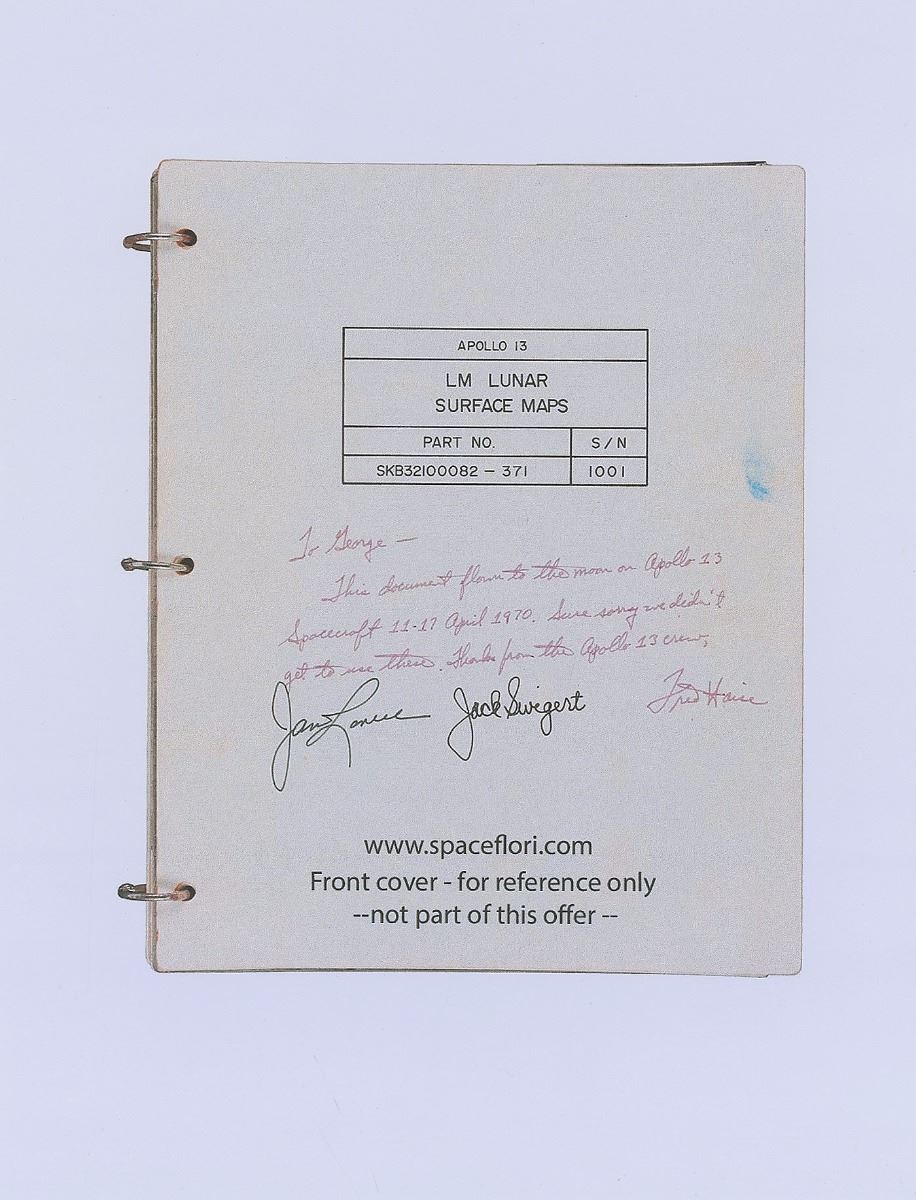 APOLLO 13
LM LUNAR
SURFACE MAPS
PART NO. S/N
SKB32100082 - 371 1001
To George —
This document flown to the moon on Apollo 13
Spacecraft 11-17 April 1970. Sure sorry we didn't
get to use these. Thanks from the Apollo 13 crew,
Jim Lovell Jack Swigert Fred Haise
www.spaceflori.com
Front cover - for reference only
--not part of this offer --